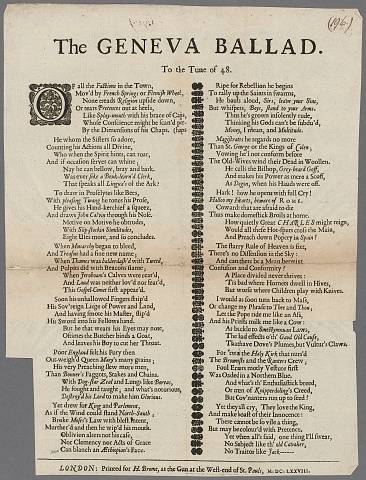 (196)
The GENEVA BALLAD.
To the Tune of 48.
OF all the Factions in the Town,
Mov'd by French Springs or Flemish Wheel,
None treads Religion upside down,
Or tears Pretences out at heels,
Like Splay-mouth with his brace of Caps,
Whose Conscience might be scan'd per-
By the Dimensions of his Chaps. (haps
He whom the Sisters so adore,
Counting his Actions all Divine,
Who when the Spirit hints, can roar,
And if occasion serves can whine;
Nay he can bellow, bray and bark.
Was ever such a Beuk-learn'd Clerk,
That speaks all Lingua's of the Ark?
To draw in Proselytes like Bees,
With pleasing Twang he tones his Prose,
He gives his Hand-kerchief a squeez,
And draws John Calvin through his Nose.
Motive on Motive he obtrudes,
With Slip-stocken Similitudes,
Eight Uses more, and so concludes.
When Monarchy began to bleed,
And Treason had a fine new name;
When Thames was balderdash'd with Tweed,
And Pulpits did with Beacons flame;
When Jeroboam's Calves were rear'd,
And Laud was neither lov'd nor fear'd,
This Gospel-Comet first appear'd.
Soon his unhallowed Fingers strip'd
His Sov'reign Liege of Power and Land,
And having smote his Master, slip'd
His Sword into his Fellows hand.
But he that wears his Eyes may note,
Oft-times the Butcher binds a Goat,
And leaves his Boy to cut her Throat.
Poor England felt his Fury then
Out-weigh'd Queen Mary's many grains;
His very Preaching slew more men,
Than Bonner's Faggots, Stakes and Chains.
With Dog-star Zeal and Lungs like Boreas,
He fought and taught, and what's notorious,
Destroy'd his Lord to make him Glorious.
Yet drew for King and Parlement,
As if the Wind could stand North-South;
Broke Moses's Law with blest intent,
Murther'd and then he wip'd his mouth.
Oblivion alters not his case,
Nor Clemency nor Acts of Grace
Can blanch an Æthiopian's Face.
Ripe for Rebellion he begins
To rally up the Saints in swarms,
He bauls aloud, Sirs, leave your Sins,
But whispers, Boys, stand to your Arms.
Thus he's grown insolently rude,
Thinking his Gods can't be subdu'd,
Money, I mean, and Multitude.
Magistrates he regards no more
Than St. George or the Kings of Colen,
Vowing he'l not conform before
The Old-Wives wind their Dead in Woollen.
He calls the Bishop, Grey-beard Goff,
And makes his Power as mere a Scoff,
As Dagon, when his Hands were off.
Hark! how he opens with full Cry!
Hallow my Hearts, beware of ROME.
Cowards that are afraid to die
Thus make domestick Broils at home.
How quietly Great CHARLES might reign,
Would all these Hot-spurs cross the Main,
And Preach down Popery in Spain!
The starry Rule of Heaven is fixt,
There's no Dissension in the Sky:
And can there be a Mean betwixt
Confusion and Conformity?
A Place divided never thrives:
'Tis bad where Hornets dwell in Hives,
But worse where Children play with Knives.
I would as soon turn back to Mass,
Or change my Phrase to Thee and Thou,
Let the Pope ride me like an Ass,
And his Priests milk me like a Cow:
As buckle to Smectymnuan Laws,
The bad effects o'th' Good Old Cause,
That have Dove's Plumes, but Vultur's Claws.
For 'twas the Holy Kirk that nurs'd
The Brownists and the Ranters Crew;
Foul Errors motly Vesture first
Was Oaded in a Northern Blue.
And what's th' Enthusiastick breed,
Or men of Knipperdoling's Creed,
But Cov'nanters run up to seed!
Yet they all cry, They love the King,
And make boast of their Innocence:
There cannot be so vile a thing,
But may be colour'd with Pretence.
Yet when all's said, one thing I'll swear,
No Subject like th' old Cavalier,
No Traitor like Jack-
LONDON: Printed for H. Brome, at the Gun at the West-end of St. Pauls, M:DC:LXXVIII.